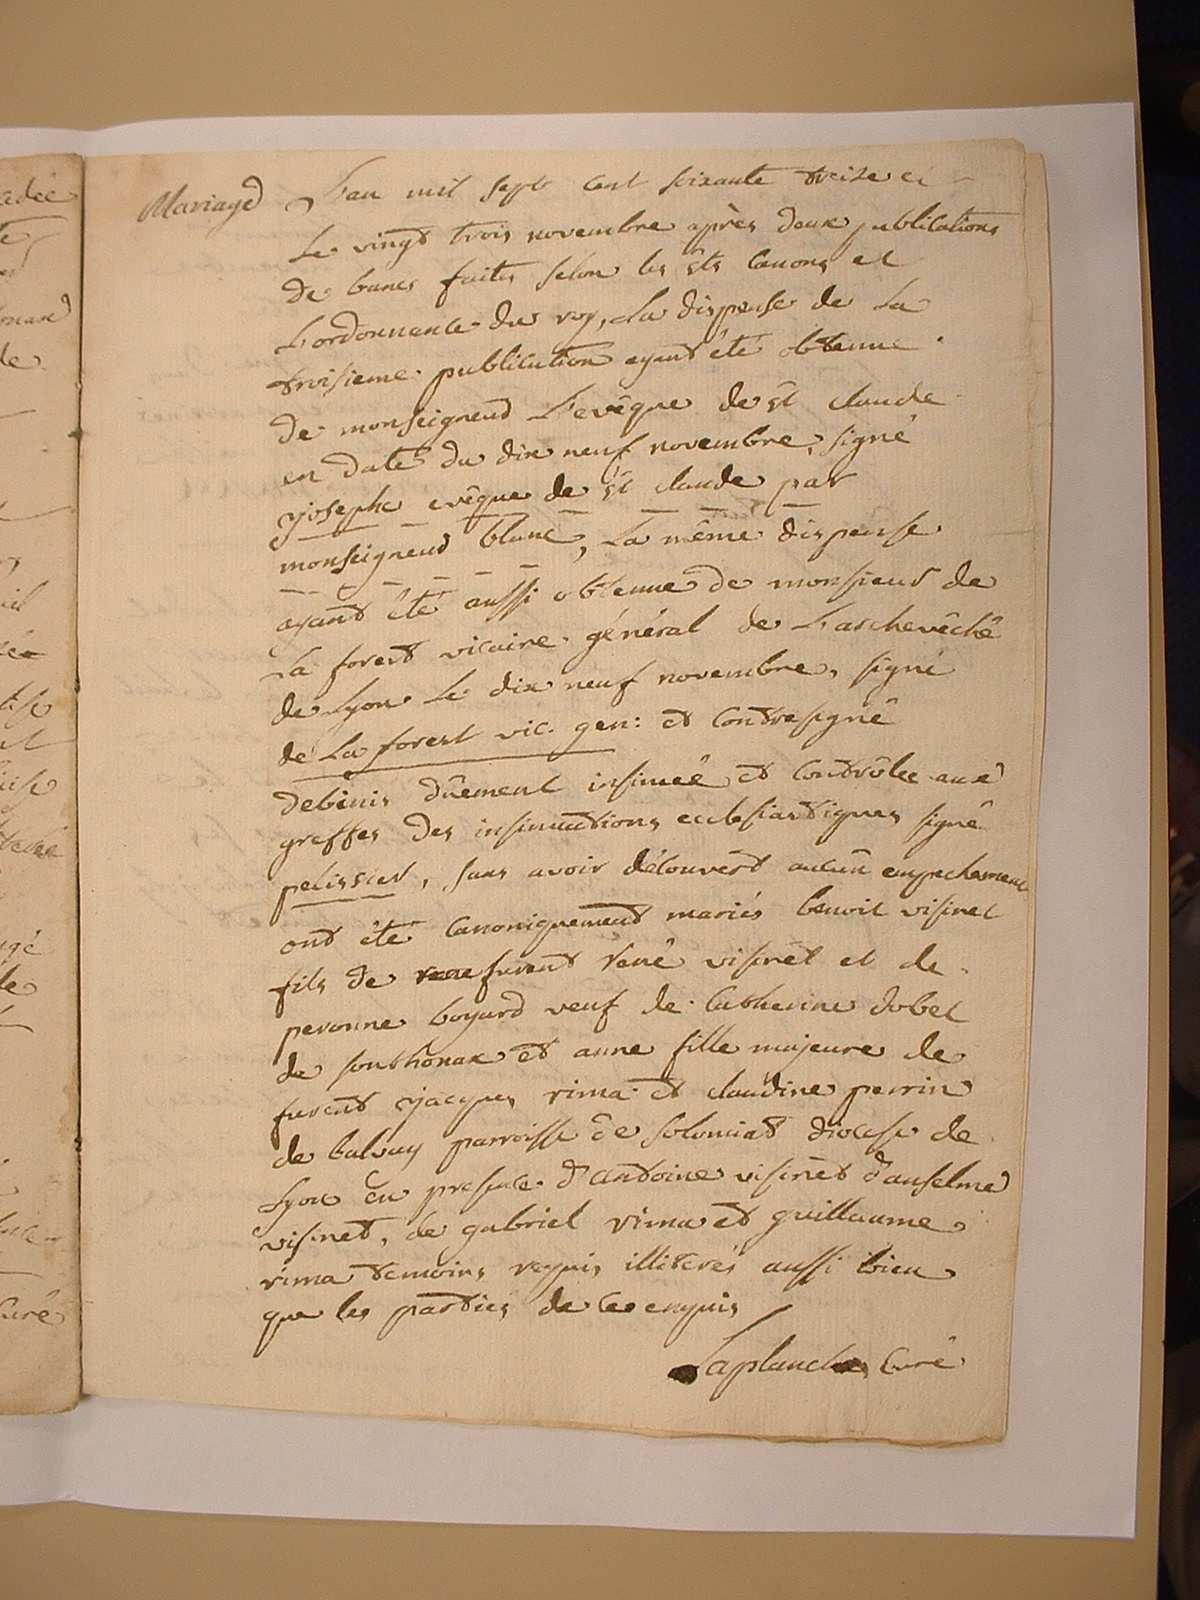 Mariage L'an mil sept cent soixante treize et
Le vingt trois novembre après deux publications
de bancs faites selon les sts canons et
L'ordonnance du roy, La dispense de La
troisieme publication ayant été obtenue
de monseigneur L'evêque de st claude
en date du dix neuf novembre, signé
joseph evêque de st claude par
monseigneur blanc, La même dispense
ayant été aussi obtenue de monsieur de
La forest vicaire général de L'archevêché
de Lyon Le dix neuf novembre, signé
de La forest vic. gen: et contresigné
debinis dûement insinuée et contrôlee aux
greffes des insinuations ecclesiastiques signé
pelissier, sans avoir découvert aucun empechement
ont été canoniquement mariés benoit visinet
fils de furent rené visinet et de
peronne boyard veuf de catherine dobet
de sonthonax et anne fille majeure de
furent jacques rima et claudine perrin
de balvay parroisse de solomiat diocese de
Lyon en presence d'antoine visinet d'anselme
visinet, de gabriel rima et guillaume
rima temoins requis illiterés aussi bien
que les parties de ce enquis
Laplanche Curé